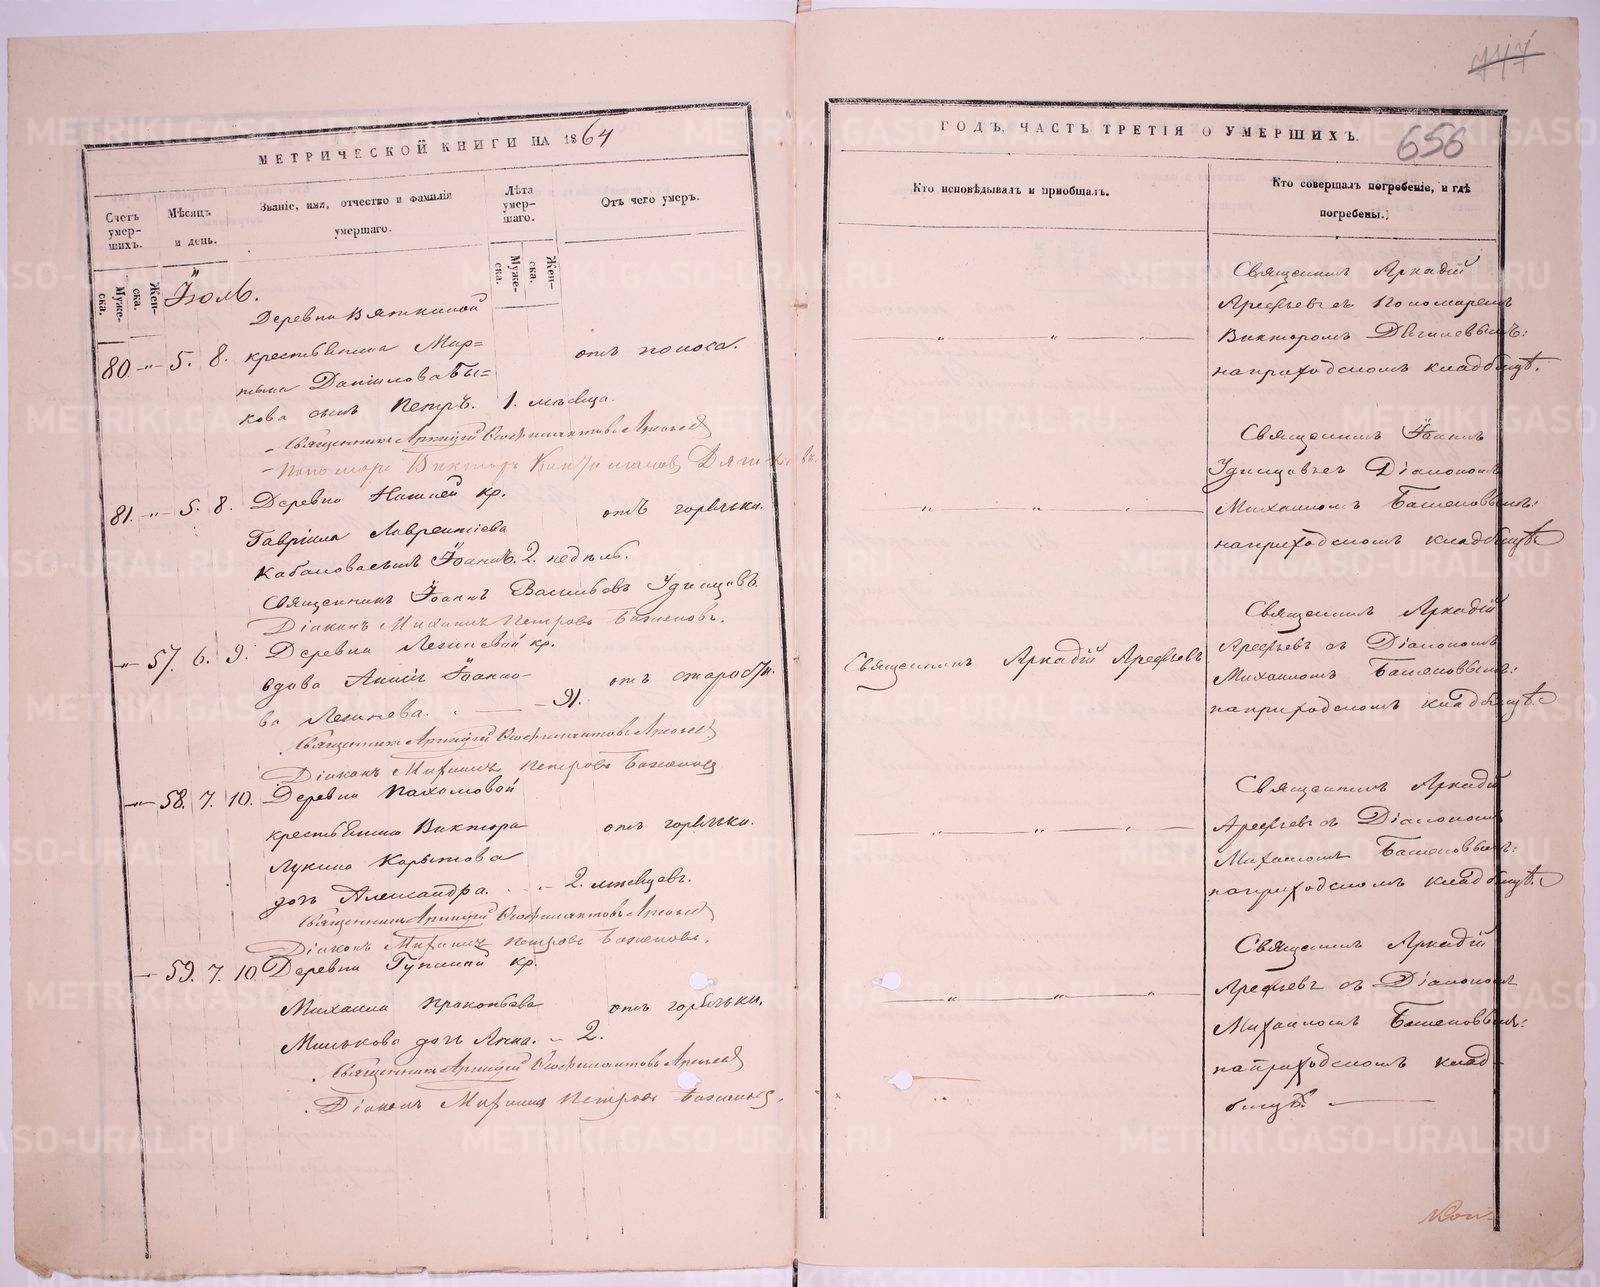 747
656
МЕТРИЧЕСКОЙ КНИГИ НА 1864
ГОДЪ, ЧАСТЬ ТРЕТІЯ О УМЕРШИХЪ.
Счетъ умер-
шихъ.
Муже-
ска.
Жен-
ска.
Мѣсяцъ
и день.
Званіе, имя, отчество и фамилія
умершаго.
Лѣта
умер-
шаго.
Муже-
ска.
Жен-
ска.
Отъ чего умеръ.
Кто исповѣдывалъ и пріобщалъ.
Кто совершалъ погребеніе, и гдѣ
погребены.
Іюль.
Деревни Вяткиной
80. -"- 5. 8. крестьянина Мар=
тына Даніилова Бы=
кова сынъ Петръ. 1. мѣсяца.
отъ поноса.
Священникъ Аркадій
Арефьевъ съ Пономаремъ
Викторомъ
на приходскомъ кладбищѣ.
Священникъ Аркадій Арефьевъ
Пономарь Викторъ
81. -"- 5. 8. Деревни кр.
Гавріила Лаврентіева
Кабакова сынъ Іоаннъ. 2. недѣль.
отъ горячки.
Священникъ Іоаннъ Васильевъ Удинцовъ
Діаконъ Михаилъ Петровъ Баженовъ.
Священникъ Іоаннъ
Удинцовъ съ Діакономъ
Михаиломъ Баженовымъ:
на приходскомъ кладбищѣ.
-"- 57. 6. 9. Деревни кр.
вдова Іоанно-
ва 91.
отъ старости.
Священникъ Аркадій Арефьевъ
Священникъ Аркадій
Арефьевъ съ Діакономъ
Михаиломъ Баженовымъ:
на приходскомъ кладбищѣ.
Священникъ Аркадій Арефьевъ
Діаконъ Михаилъ Петровъ Баженовъ
-"- 58. 7. 10. Деревни Пахомовой
крестьянина Виктора
Лукина Корытова
дочь Александра. 2. мѣсяцевъ.
отъ горячки.
Священникъ Аркадій
Арефьевъ съ Діакономъ
Михаиломъ Баженовымъ:
на приходскомъ кладбищѣ.
Священникъ Аркадій Арефьевъ
Діаконъ Михаилъ Петровъ Баженовъ.
59. 7. 10. Деревни кр.
Михаила Прокопьева
Милькова дочь Анна. - 2.
отъ горячки.
Священникъ Аркадій
Арефьевъ съ Діакономъ
Михаиломъ Баженовымъ:
на приходскомъ клад-
бищѣ.
Священникъ Аркадій Арефьевъ
Діаконъ Михаилъ Петровъ Баженовъ.
METRIKI.GASO-URAL.RU